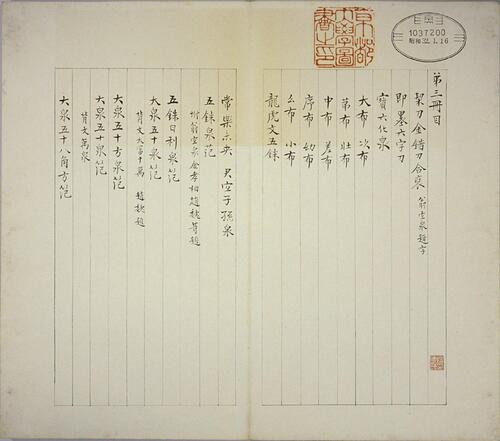 第三冊目
栔刀金錯刀合裝 翁宜泉題字
即墨六字刀
寶六化泉
大布 次布
第布 壯布
中布 差布
序布 幼布
幺布 小布
龍虎文五銖
常樂未央 君宜子孫泉
五銖泉范
五銖日利泉笵
大泉五十泉笵
背文大富千萬 趙魏題
大泉五十方泉笵
大泉五十泉笵
背文萬泉
大泉五十八角方笵
京都
大學圖
書之印
1037200
昭和32.1.16